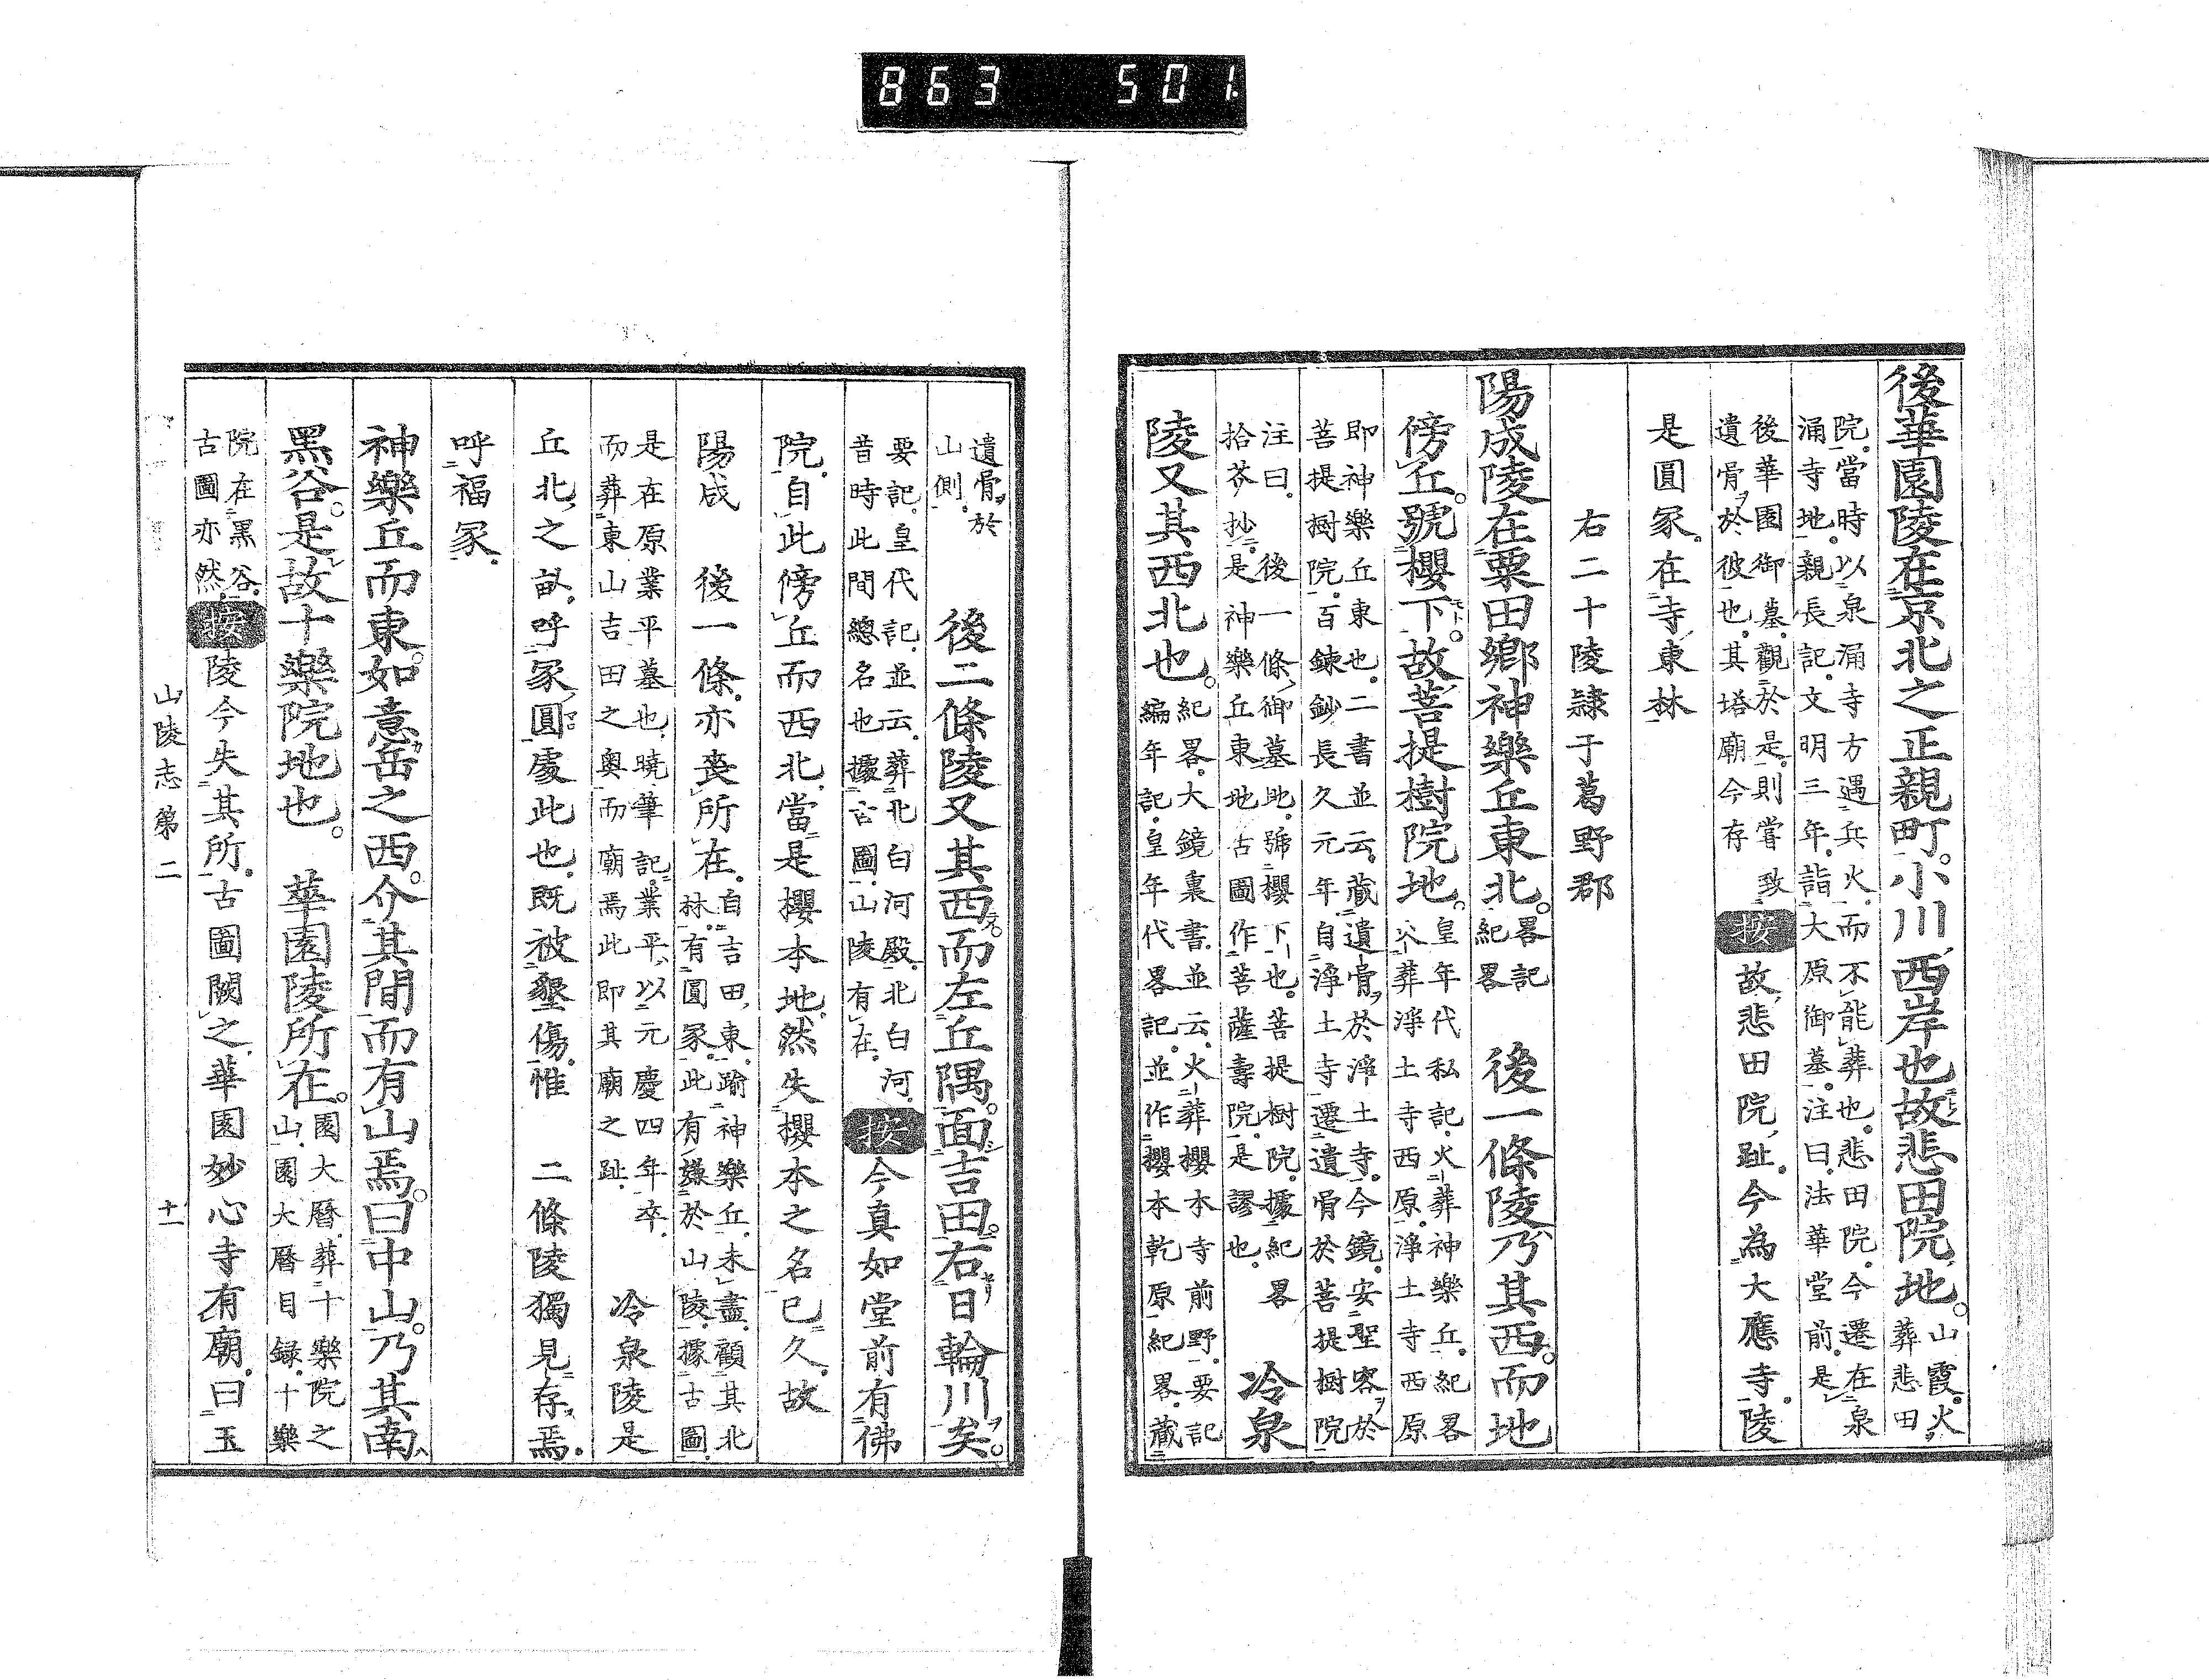 863 501.
後華園陵在京北之正親町小川西岸也故悲田院地。山霞。火葬悲田
院當時以泉涌寺方遇兵火而不能葬也。悲田院今遷在泉
涌寺地。親長記。文明三年。詣大原御墓。注曰。法華堂前。是
後華園御墓。觀於是則嘗致
遺骨於彼也。其塔廟今存
按故悲田院趾。今為大應寺。陵
是圓冢。在寺東林
右二十陵隷于葛野郡
陽成陵在粟田鄉神樂丘東北。畧記紀畧 後一條陵乃其西而地
傍丘。號櫻下。故菩提樹院地。皇年代私記。火葬神樂丘。紀畧火葬淨土寺西原。淨土寺西原
即神樂丘東也。二書並云。蔵遺骨於淨土寺。今鏡。安聖容於
菩提樹院。百錬鈔長久元年。自淨土寺遷遺骨於菩提樹院
注曰。後一條御墓此。號櫻下也。菩提樹院。據紀畧
拾芥抄。是神樂丘東地。古圖作菩薩壽院。是謬也。 冷泉
陵又其西北也。紀畧。大鏡裏書。並云。火葬櫻本寺前野。要記
編年記。皇年代畧記。並作櫻本乾原。紀畧。蔵
遺骨於
山側。 後二條陵又其西。而左丘隅。面吉田。右日輪川矣。
要記。皇代記。並云。葬北白河殿。北白河。
昔時此間總名也。據古圖。山陵有在。按今真如堂前有佛
院。自此傍丘而西北。當是櫻本地。然失櫻本之名已久。故
陽成 後一條。亦喪所在。自吉田東。踰神樂丘。未盡。顧其北
林。有圓冢。此有嫌於山陵。據古圖。
是在原業平墓也。曉筆記。業平。以元慶四年卒。
而葬東山吉田之奥。而廟焉。此即其廟之趾。 冷泉陵是
丘北之畝。呼冢圓處此也。既被墾傷。惟 二條陵獨見存焉。
呼福冢。
神樂丘而東。如意岳之西。介其間而有山焉。曰中山。乃其南
黑谷。是故十樂院地也。 華園陵所在。園大暦。葬十樂院之
山。園大暦目録。十樂
院在黑谷。
古圖亦然。按陵今失其所。古圖闕之。華園妙心寺有廟。曰玉
山陵志第二 十一